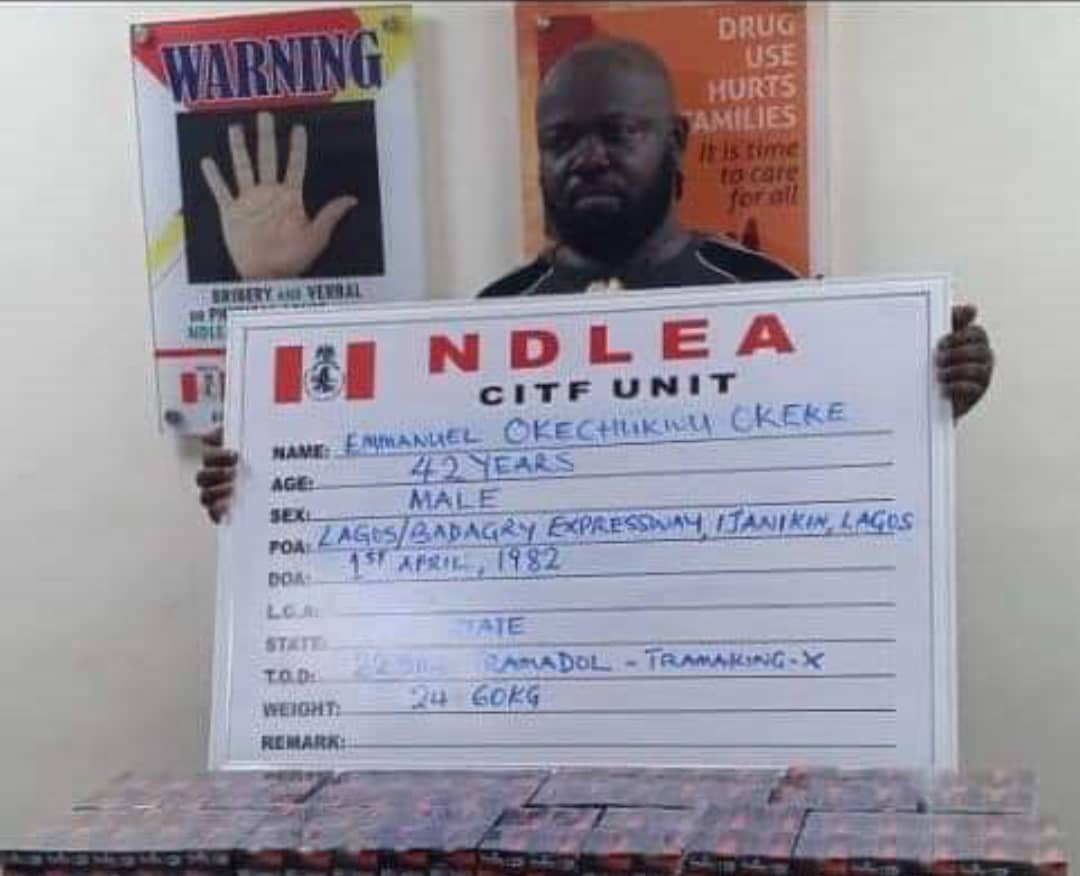 WARNING
BRIBERY AND VERBAL
OR
NDLE
DRUG
USE
HURTS
FAMILIES
It is time
to care
for all
NDLEA
CITF UNIT
NAME: EMMANUEL OKECHUKWU OKEKE
AGE: 42 YEARS
SEX: MALE
POA: LAGOS/BADAGRY EXPRESSWAY, IJANIKIN, LAGOS
DOA: 1ST APRIL, 1982
L.G.A:
STATE: TATE
T.O.D: RAMADOL - TRAMAKING-X
WEIGHT: 24 60KG
REMARK: